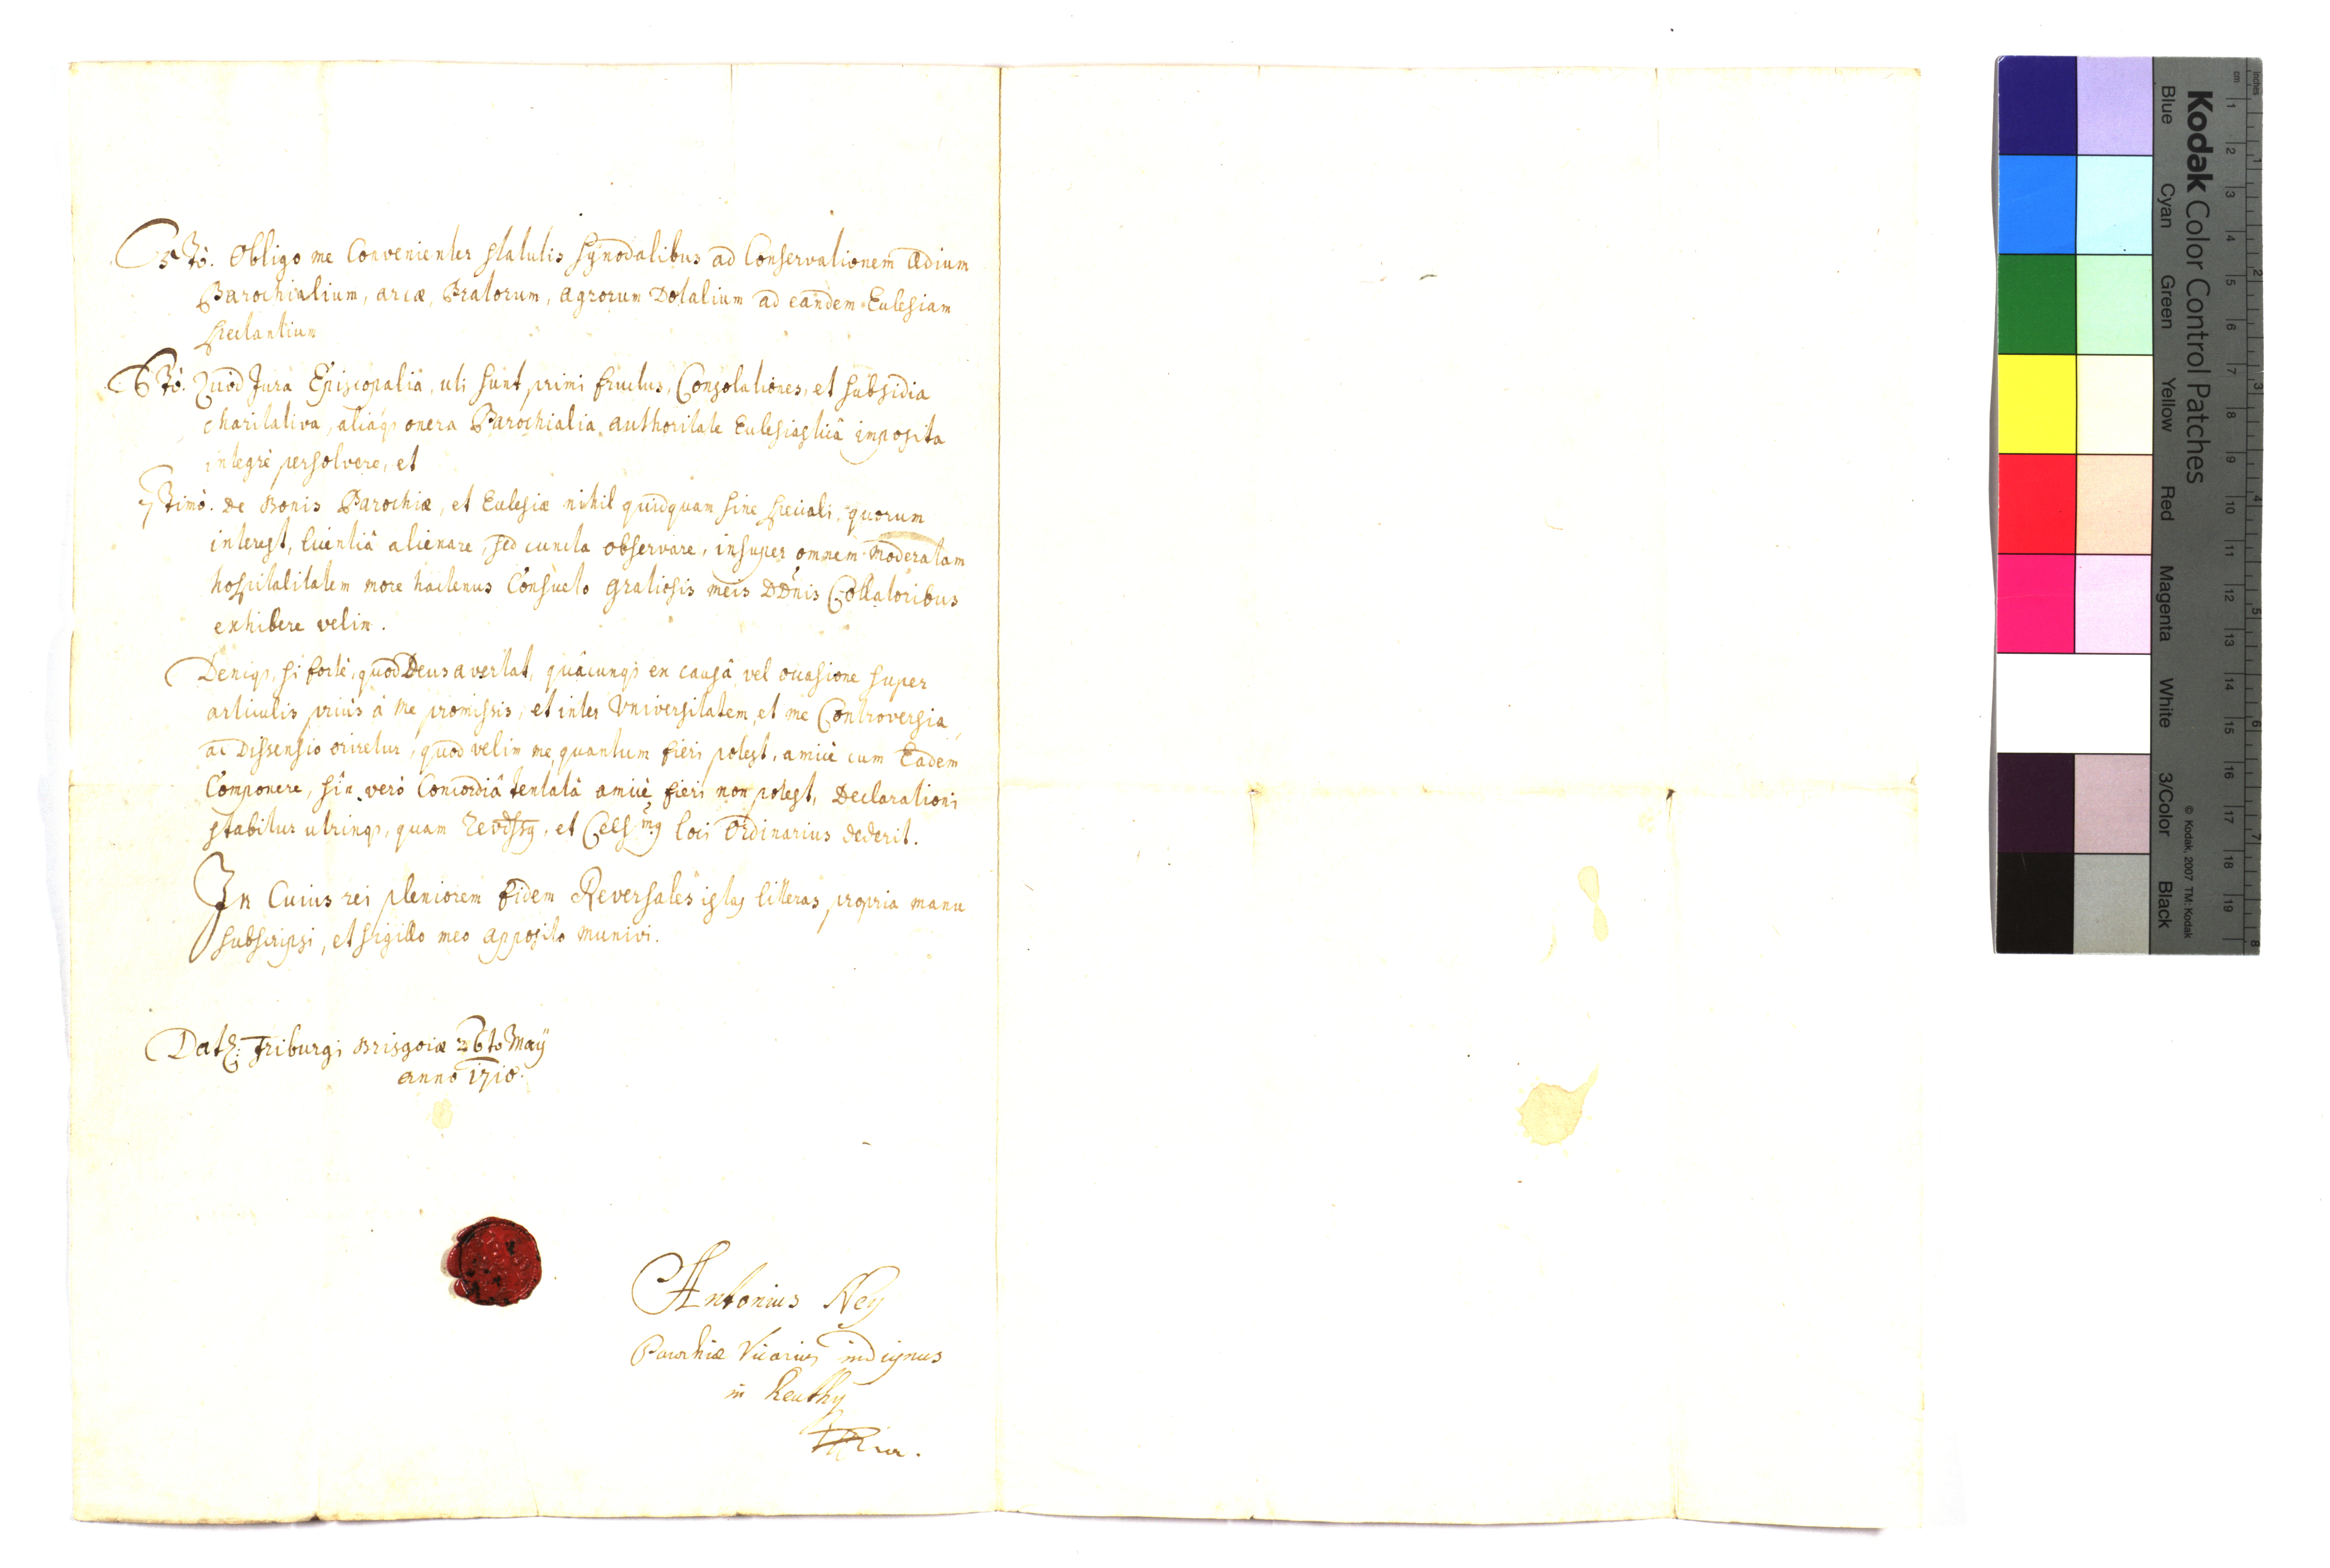 5tò. Obligo me Convenienter statutis synodalibus ad Conservationem Ædium
Parochialium, arcæ, Pratorum, agrorum Dotalium ad eandem Ecclesiam
spectantium
6tò. Quòd Jura Episcopaliâ, uti sunt primi fructus, Consolationes, et subsidia
charitativa, aliáq3 onera Parochialia authoritate Ecclesiasticâ imposita
integrè persolvere, et
7timò. De Bonis Parochiæ, et Ecclesiæ nihil quidquam sine speciali, quorum
interest, licentiâ alienare, sed cuncta observare, insuper omnem moderatam
hospitalitatem more hactenus Consueto gratiosis meis DDnis Collatoribus
exhibere velim.
Deniq3, si fortè, quod Deus avertat, quâcunq3 ex causâ vel occasione super
articulis priùs à me promissis, et inter Vniversitatem, et me Controversia,
ac Dissensio oriretur, quod velim me, quantum fieri potest, amicè cum Eadem
Componere, sîn verò Concordiâ tentatâ amicè fieri non potest, Declarationi
stabitur utrinq3, quam revdss9, et Cels.m9 loci Ordinarius dederit.
In Cuius rei pleniorem fidem Reversales istas litteras propria manu
subscripsi, et sigillo meo apposito munivi.
Dat: Friburgi Brisgoiæ 26to Maÿ
anno 1710.
Antonius Neÿ
Parochiæ Vicarius indignus
in Reuthÿ
Kodak Color Control Patches
Blue Cyan Green Yellow Red Magenta White 3/Color Black
© Kodak, 2007 TM: Kodak
cm 1 2 3 4 5 6 7 8 9 10 11 12 13 14 15 16 17 18 19
inches 1 2 3 4 5 6 7 8